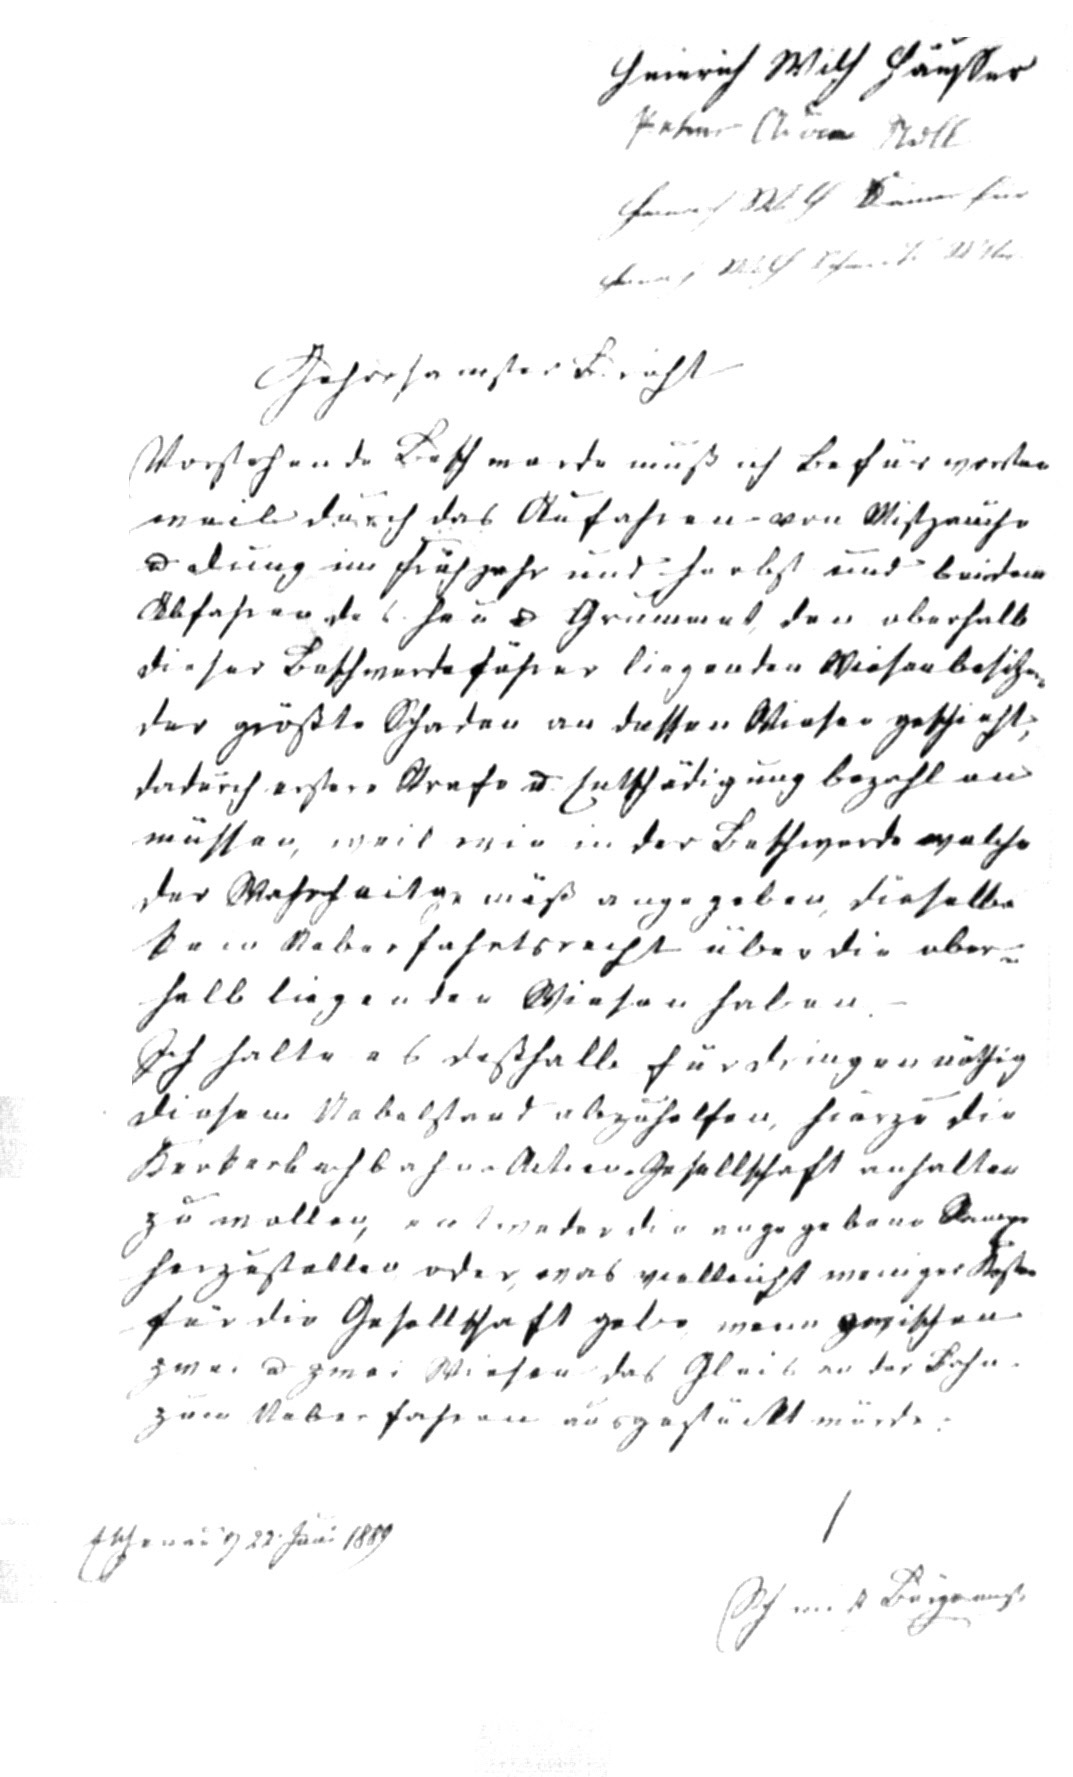 Heinrich Wilh Häusser
Peter
Heinrich Wilh
Heinrich Wilh Schmidt
Gehorsamster Bericht
Vorstehende Beschwerde muß ich befürworten
weil durch das Aufahren von Mistjauche
u Dung im Frühjahr und Herbst und bei dem
Abfahren des Heu u Grummet, den oberhalb
dieser Beschwerdeführer liegenden Wiesenbesitzer
der größte Schaden an dessen Wiesen geschieht,
dadurch erstere Strafe u. Entschädigung bezahlen
müssen, weil wie in der Beschwerde welche
der Wahrheitgemäß angegeben, dieselbe
kein Ueberfahrtsrecht über die ober-
halb liegenden Wiesen haben.
Ich halte es deßhalb für dringen nöthig
diesem Uebelstand abzuhelfen, hierzu die
Kerkerbachbahn-Actien-Gesellschaft anhalten
zu wollen, entweder die angegebene Rampe
herzustellen oder, was vielleicht weniger Kosten
für die Gesellschaft gebe, wenn zwischen
zwei u zwei Wiesen das Gleis an der Bahn
zum Ueberfahren ausgestückt würde.
Eschenau d 22. Juni 1889
Schmidt Bürgermst.